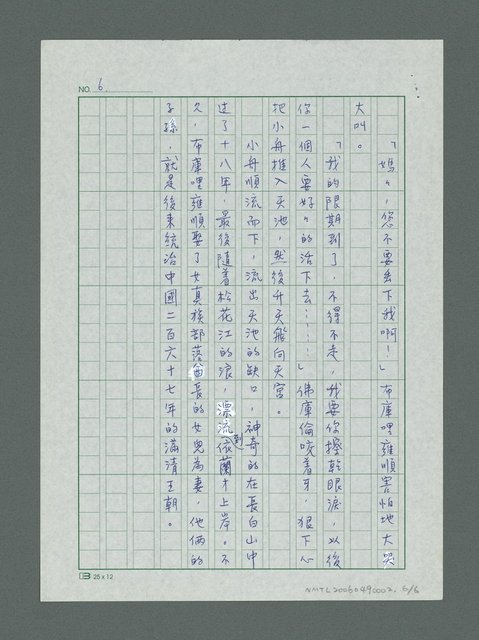 NO. 6
「媽々，您不要丟下我啊！」布庫哩雍順害怕地大哭
大叫。
「我的限期到了，不得不走，我要你擦乾眼淚，以後
你一個人要好々的活下去……」佛庫倫咬着牙，狠下心
把小舟推入天池，然後升天飛向天宮。
小舟順流而下，流出天池的缺口，神奇的在長白山中
過了十八年，最後隨着松花江的浪，漂流到依蘭才上岸。不
久，布庫哩雍順娶了女真族部落酋長的女兒為妻，他倆的
子孫，就是後來統治中國二百六十七年的滿清王朝。
25×12
NMTL20060490002, 6/6